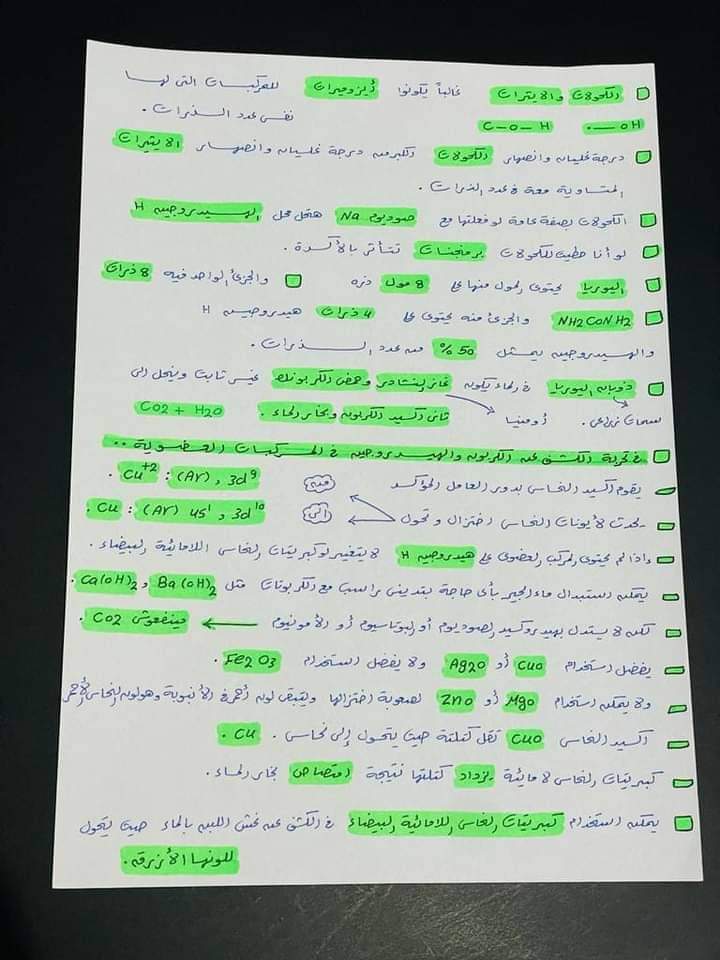 الكحولات والايثرات غالباً يكونوا أيزوميرات للمركبات التى لها
نفس عدد الذرات .
C-O-H OH
درجة غليان وانصهار الكحولات اكبر من درجة غليان وانصهار الايثرات
المتساوية معة فى عدد الذرات .
الكحولات بصفة عامة لو فعلتها مع صوديوم Na هتحل محل الهيدروجين H
لو أنا حطيت للكحولات برمنجنات تتأثر بالأكسدة .
اليوريا يحتوى المول منها على 8 مول ذره والجزئ الواحد فيه 8 ذرات
NH2CONH2 والجزئ منه يحتوى على 4 ذرات هيدروجين H
والهيدروجين يمثل 50 % من عدد الذرات .
ذوبان اليوريا فى الماء يكون غاز النشادر وحمض الكربونيك غير ثابت وينحل الى
سماد زراعى . أو منيا ثانى أكسيد الكربون وبخار الماء . CO2 + H2O
فى تجربة الكشف عن الكربون والهيدروجين فى المركبات العضوية ..
يقوم أكسيد النحاس بدور العامل المؤكسد من Cu+2 : (Ar) , 3d9 .
يحدث لأيونات النحاس اختزال وتحول الى Cu : (Ar) 4s1 , 3d10 .
واذا لم يحتوى المركب العضوى على هيدروجين H لا يتغير لو كبريتات النحاس اللامائية البيضاء .
يمكن استبدال ماء الجير بأى حاجة بتدينى راسب مع الكربونات مثل Ba(OH)2 و Ca(OH)2 .
لكن لا يستدل بهيدروكسيد الصوديوم أو البوتاسيوم أو الأمونيوم مينفعوش CO2 .
يفضل استخدام CuO أو Ag2O ولا يفضل استخدام Fe2O3 .
ولا يمكن استخدام MgO أو ZnO لصعوبة اختزالها ويتبقى لون أحمر فى الأنبوبة وهو لون النحاس الأحمر
أكسيد النحاس CuO تقل كتلتة حيث يتحول إلى نحاس . Cu .
كبريتات النحاس لا مائية يزداد كتلتها نتيجة امتصاص بخار الماء .
يمكن استخدام كبريتات النحاس اللامائية البيضاء فى الكشف عن غش اللبن بالماء حيث يتحول
للونها الأزرق .